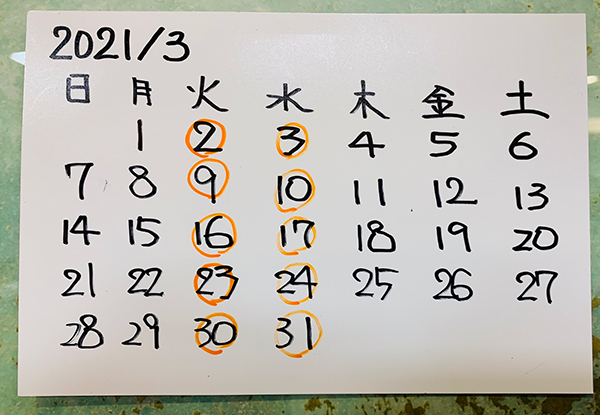 2021/3
日 月 火 水 木 金 土
1 2 3 4 5 6
7 8 9 10 11 12 13
14 15 16 17 18 19 20
21 22 23 24 25 26 27
28 29 30 31